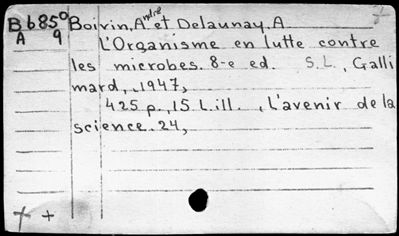 Bb85° Boivin, André et Delaunay, A
A 9 L'Organisme en lutte contre
les microbes. 8-e ed. S.L., Galli
mard, 1947,
425 p., 15 L. ill., L'avenir de la
science. 24,
+ +